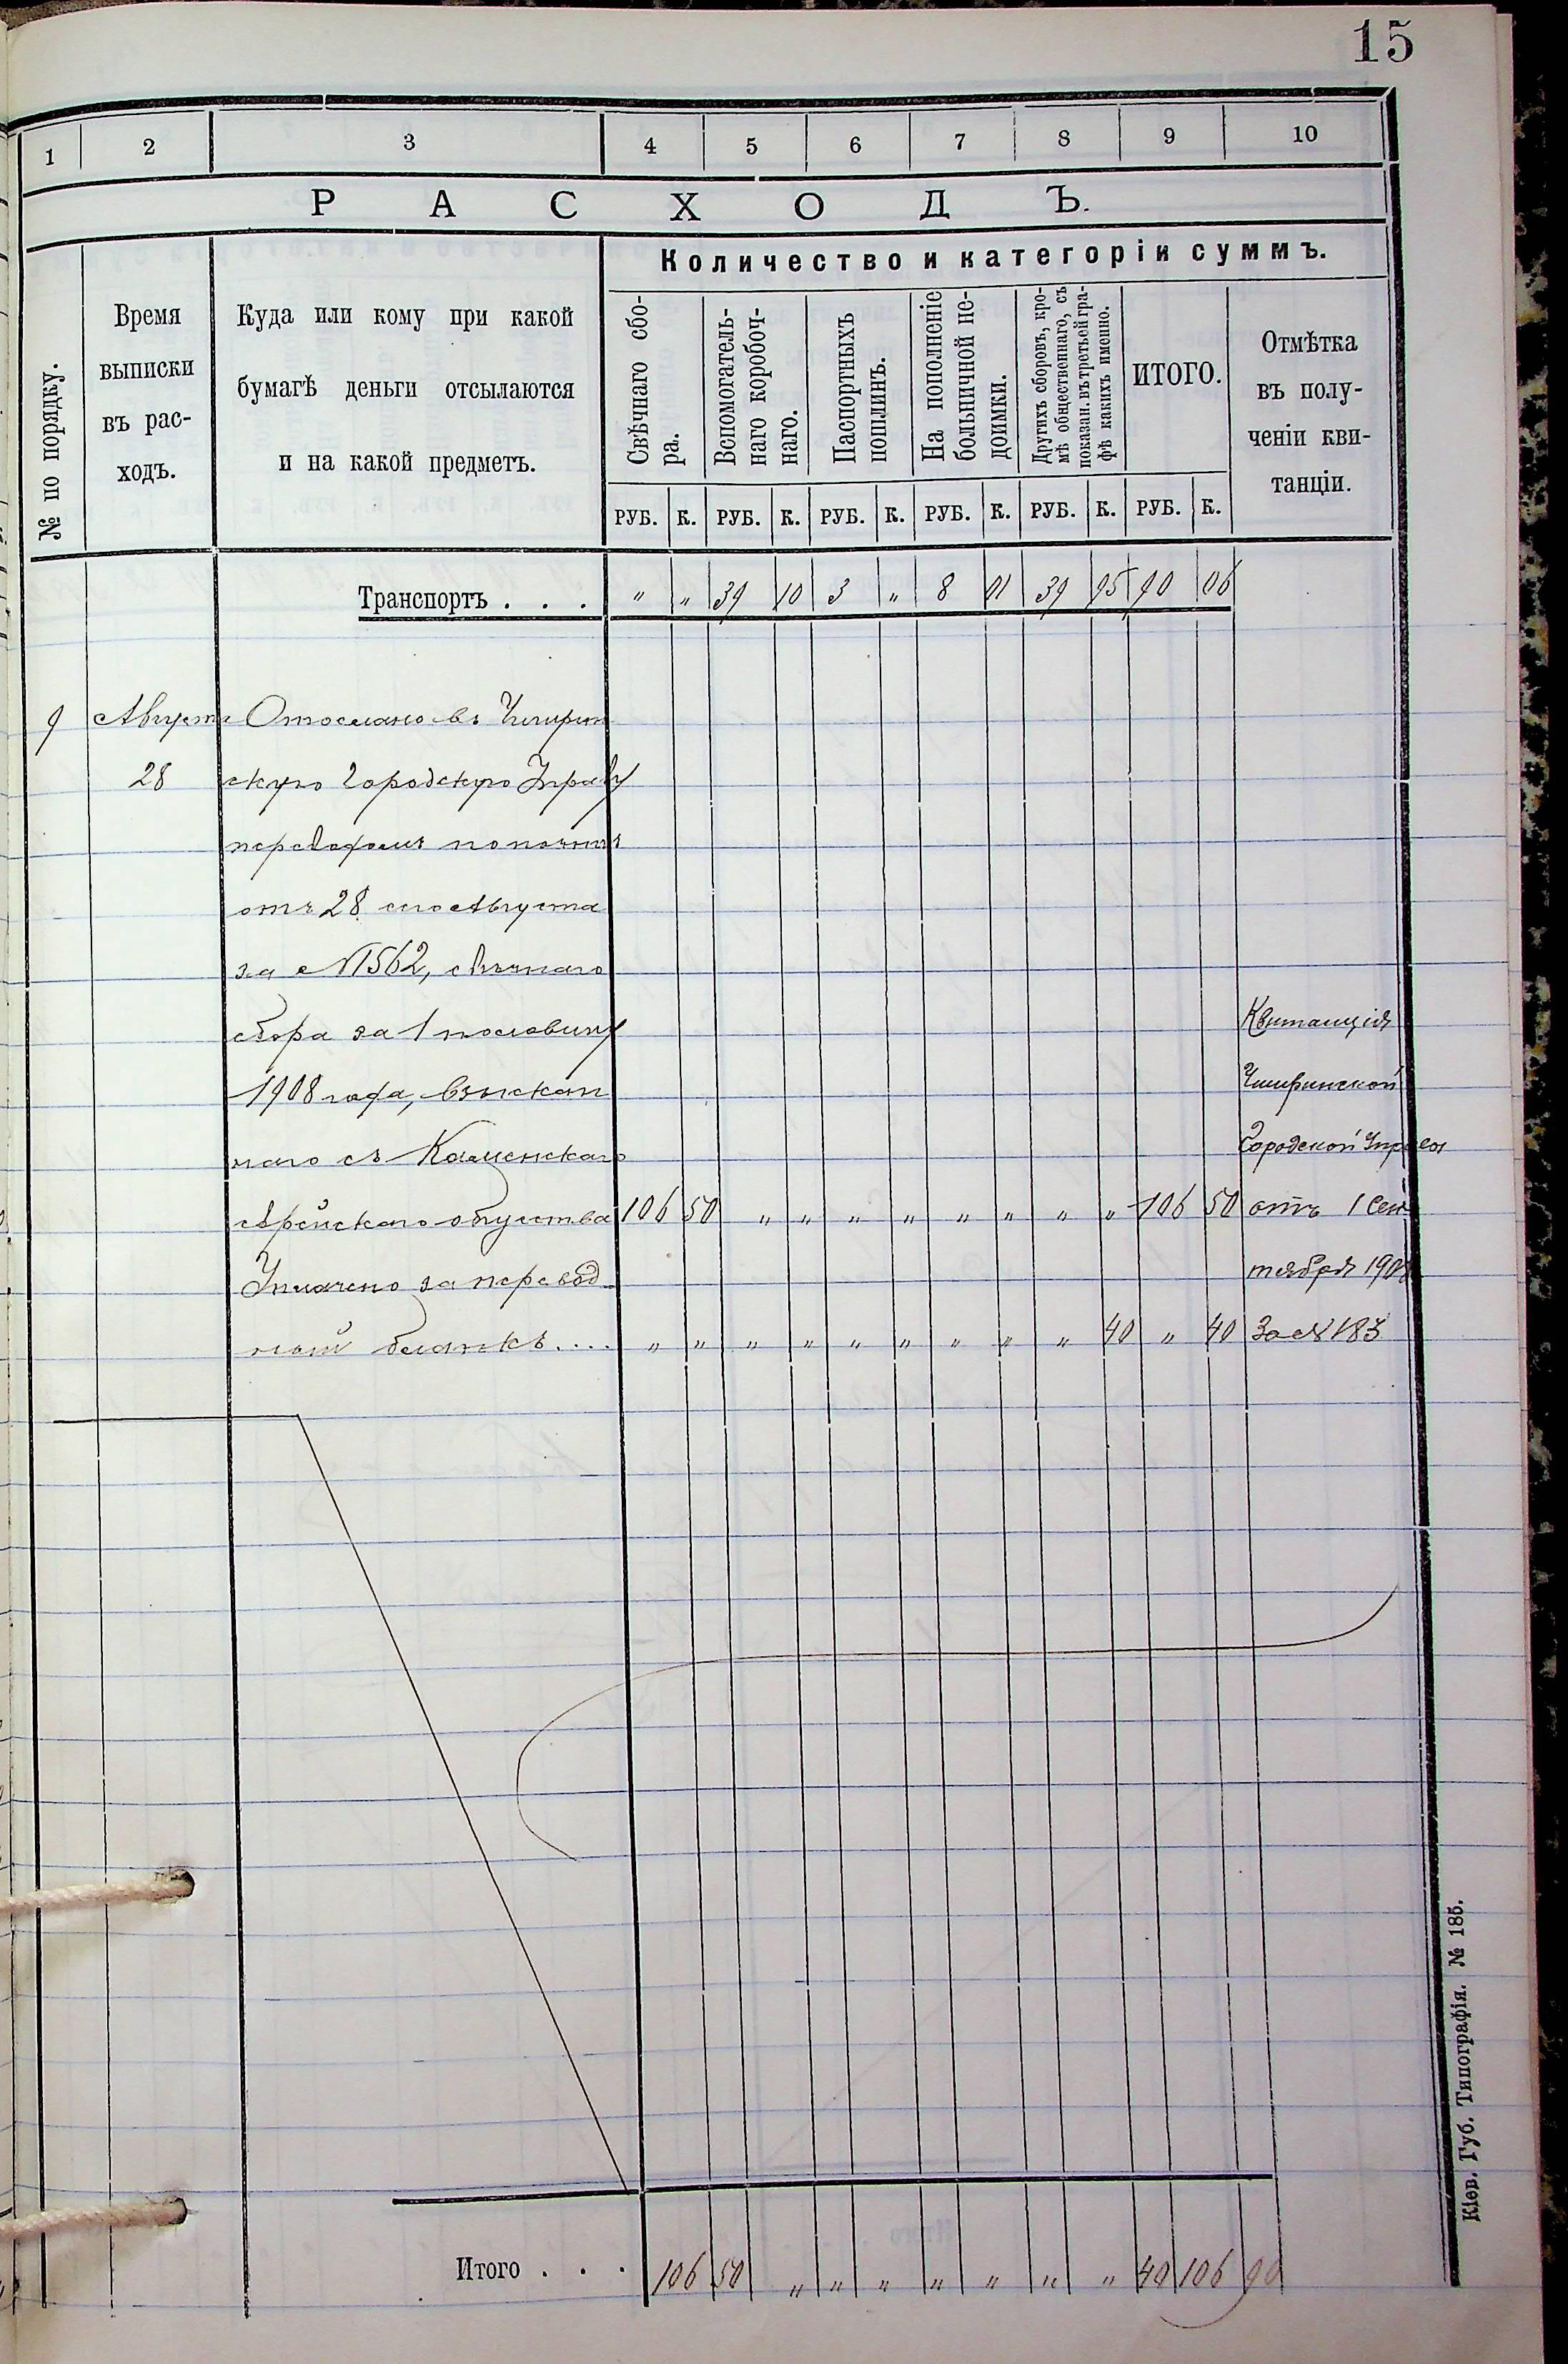 15
1 2 3 4 5 6 7 8 9 10
РАСХОДЪ.
№ по порядку.
Время
выписки
въ рас-
ходъ.
Куда или кому при какой
бумагѣ деньги отсылаются
и на какой предметъ.
Количество и категоріи суммъ.
Свѣчнаго сбо-
ра.
Вспомогатель-
наго коробоч-
наго.
Паспортныхъ
пошлинъ.
На пополненіе
больничной не-
доимки.
Другихъ сборовъ, кро-
мѣ общественнаго, съ
показан. въ третьей гра-
фѣ какихъ именно.
ИТОГО.
Отмѣтка
въ полу-
ченіи кви-
танціи.
РУБ. К. РУБ. К. РУБ. К. РУБ. К. РУБ. К. РУБ. К.
Транспортъ . . . " " 39 10 3 " 8 01 39 95 90 06
9 Августа Отослано въ Чигирин
28 скую Городскую Управу
переводомъ по почтѣ
отъ 28 сего Августа
за № 1562, свѣчнаго
сбора за 1 половину
1908 года, взыскан
наго съ Каменскаго
еврейскаго общества 106 50 " " " " " " " " 106 50
Уплачено за перевод
ный бланкъ.... " " " " " " " " " 40 " 40
Квитанція
Чигиринской
Городской Управы
отъ 1 Сен
тября 1908
за № 183
Итого . . . 106 50 " " " " " " " 40 106 90
Кіев. Губ. Типографія. № 185.